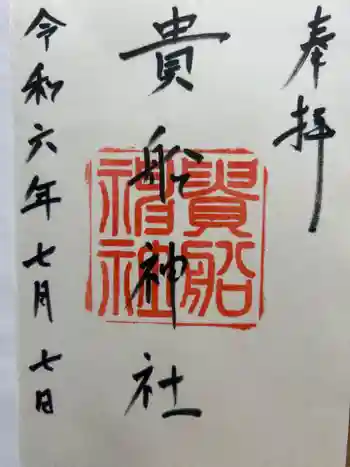 奉拝
貴船神社
貴船
神社
令和六年七月七日